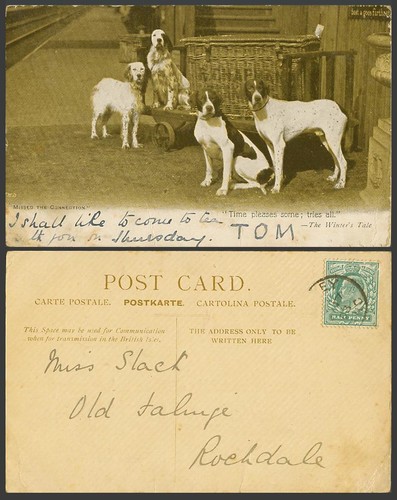 MISSED THE CONNECTION.
"Time pleases some; tries all."
—The Winter's Tale
I shall like to come to tea
with you on Thursday.
TOM
POST CARD.
CARTE POSTALE. POSTKARTE. CARTOLINA POSTALE.
This Space may be used for Communication
when for transmission in the British Isles.
THE ADDRESS ONLY TO BE
WRITTEN HERE
HALF PENNY
Miss Slack
Old Falinge
Rochdale